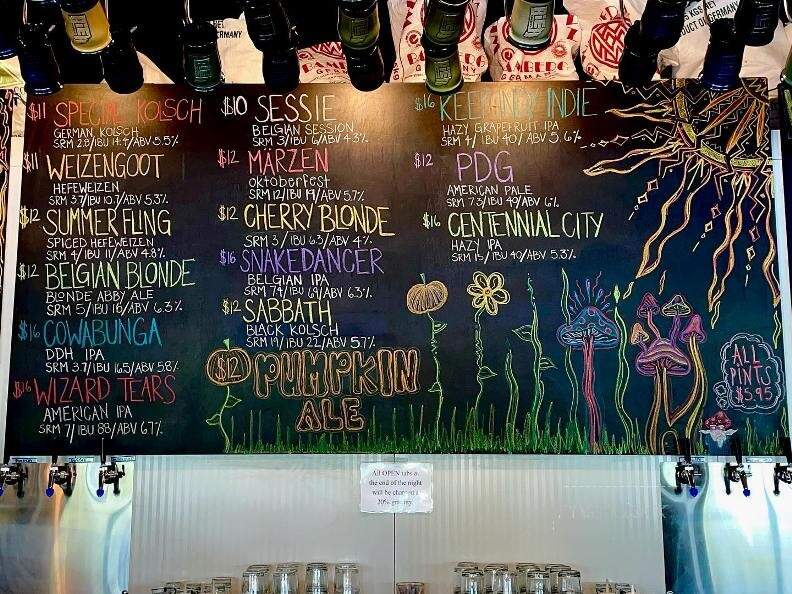 $11 SPECIAL KOLSCH
GERMAN KOLSCH
SRM 2.8/IBU 14.4/ABV 5.5%
$11 WEIZENGOOT
HEFEWEIZEN
SRM 3.7/IBU 10.7/ABV 5.3%
$12 SUMMER FLING
SPICED HEFEWEIZEN
SRM 4/IBU 11/ABV 4.8%
$12 BELGIAN BLONDE
BLONDE ABBY ALE
SRM 5/IBU 18/ABV 6.3%
$16 COWABUNGA
DDH IPA
SRM 3.7/IBU 16.5/ABV 5.8%
$16 WIZARD TEARS
AMERICAN IPA
SRM 7/IBU 88/ABV 6.7%
$10 SESSIE
BELGIAN SESSION
SRM 3/IBU 6/ABV 4.3%
$12 MARZEN
oktoberfest
SRM 12/IBU 19/ABV 5.7%
$12 CHERRY BLONDE
SRM 3/IBU 6.3/ABV 4%
$16 SNAKEDANCER
BELGIAN IPA
SRM 7.4/IBU 69/ABV 6.3%
$12 SABBATH
BLACK KOLSCH
SRM 19/IBU 22/ABV 5.7%
$12 PUMPKIN
ALE
$16 KEEP INDY INDIE
HAZY GRAPEFRUIT IPA
SRM 4/IBU 40/ABV 5.6%
$12 PDG
AMERICAN PALE
SRM 7.3/IBU 49/ABV 6%
$16 CENTENNIAL CITY
HAZY IPA
SRM 15/IBU 40/ABV 5.3%
ALL
PINTS
$5.95
All OPEN tabs at
the end of the night
will be charged a
20% gratuity
GERMANY
BAMBERG
GERMANY
BAMBERG
GERMANY
GERMANY